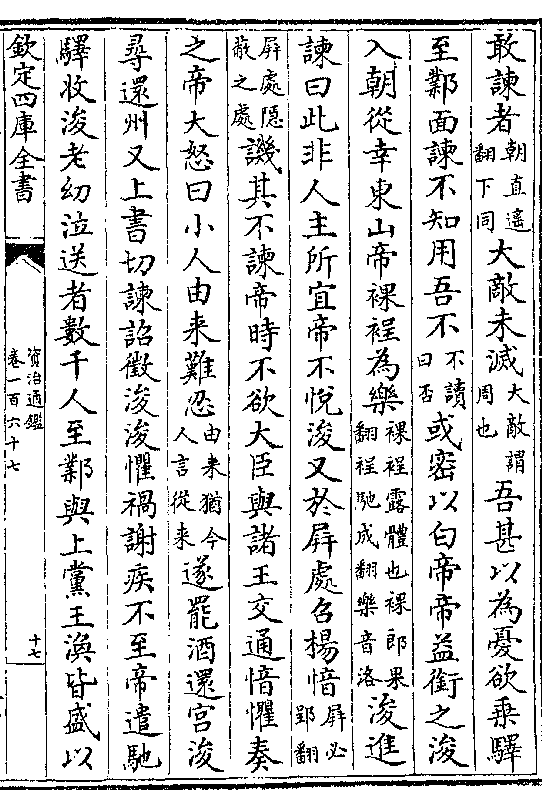 敢諫者朝直遙翻下同大敵未滅大敵謂周也吾甚以為憂欲乗驛
至鄴面諫不知用吾不不讀曰否或密以白帝帝益銜之浚
入朝從幸東山帝裸裎為樂裸裎露體也裸郎果翻裎馳成翻樂音洛浚進
諫曰此非人主所宜帝不悅浚又於屏處召楊愔屏必郢翻
屏處隱蔽之處譏其不諫帝時不欲大臣與諸王交通愔懼奏
之帝大怒曰小人由来難忍由来猶今人言從来遂罷酒還宮浚
尋還州又上書切諫詔徵浚浚懼禍謝疾不至帝遣馳
驛收浚老幼泣送者數千人至鄴與上黨王渙皆盛以
欽定四庫全書
資治通鑑
卷一百六十七
十七